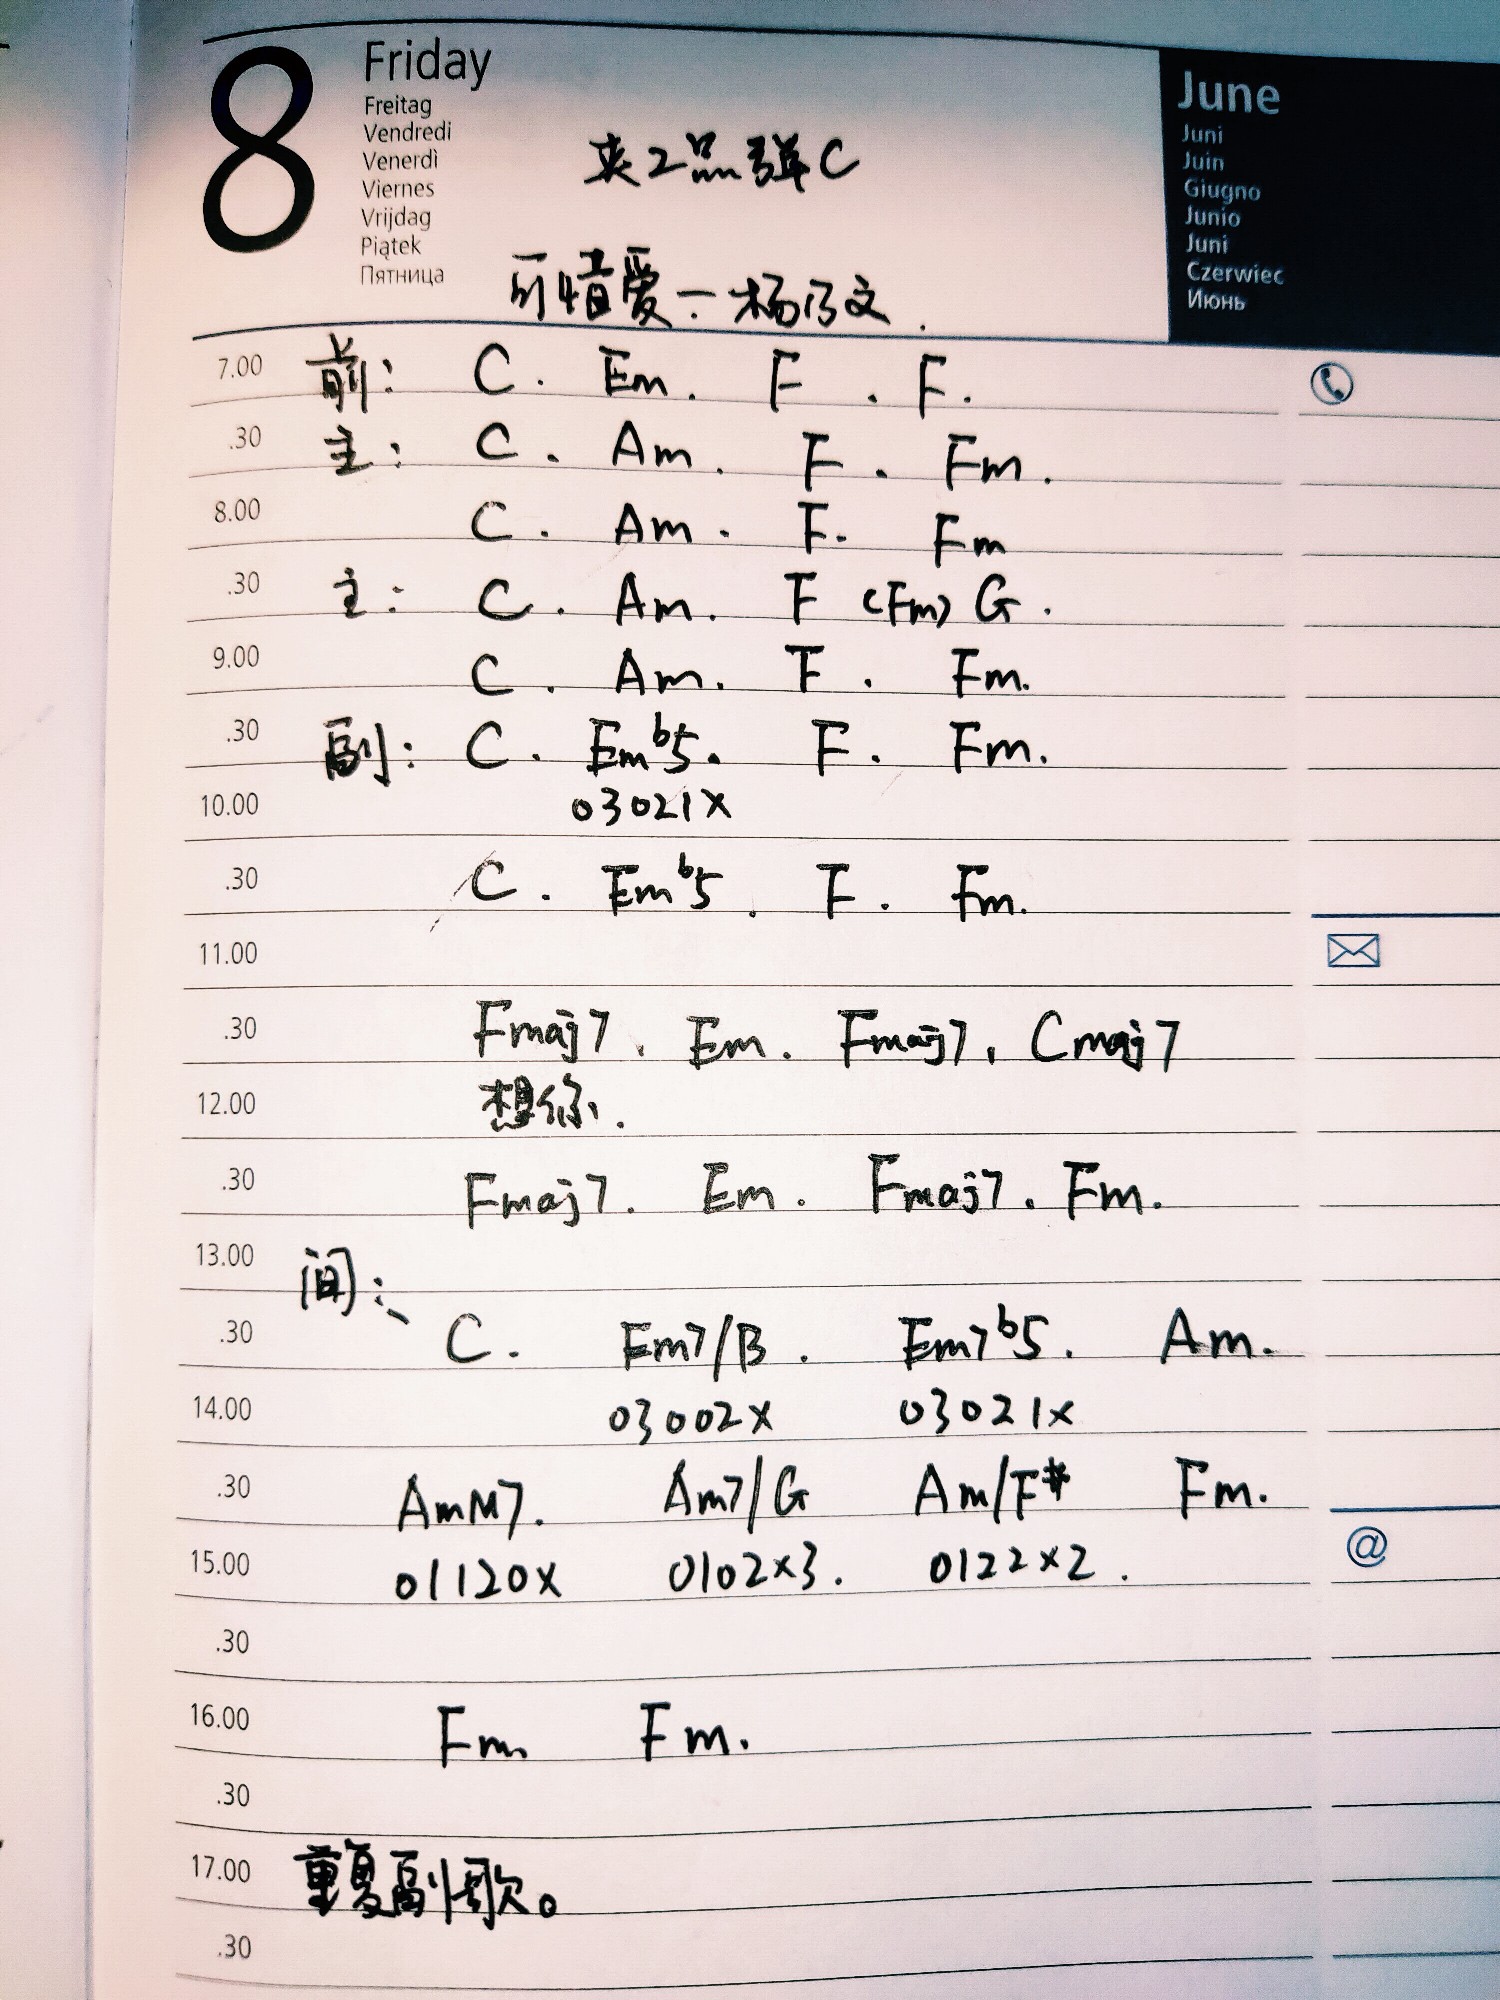 8 Friday
Freitag
Vendredi
Venerdì
Viernes
Vrijdag
Piątek
Пятница
夹2品弹C
可惜爱一杨乃文.
June
Juni
Juin
Giugno
Junio
Juni
Czerwiec
Июнь
7.00 前: C. Em. F. F.
.30 主: C. Am. F. Fm.
8.00 C. Am. F. Fm
.30 主: C. Am. F (Fm) G.
9.00 C. Am. F. Fm.
.30 副: C. Em♭5. F. Fm.
10.00 03021x
.30 C. Em♭5. F. Fm.
11.00
.30 Fmaj7. Em. Fmaj7. Cmaj7
12.00 想你.
.30 Fmaj7. Em. Fmaj7. Fm.
13.00 间:
.30 C. Em7/B. Em7♭5. Am.
14.00 03002x 03021x
.30 AmM7. Am7/G Am/F# Fm.
15.00 01120x 0102x3. 0122x2.
.30
16.00 Fm. Fm.
.30
17.00 重复副歌。
.30
@